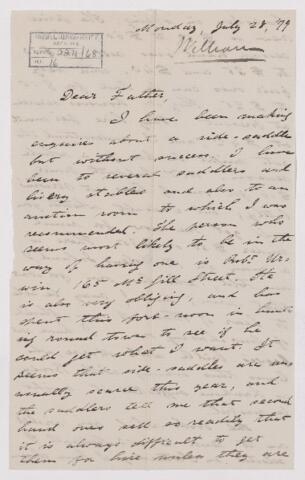 Monday, July 28, '79
William
McGILL UNIVERSITY
ARCHIVES
ACC. NO. 224/68
REF. 16
Dear Father,
I have been making
enquiries about a side-saddle
but without success. I have
been to several saddlers and
livery stables and also to an
auction room to which I was
recommended. The person who
seems most likely to be in the
way of having one is Robt. Ir-
win, 165 McGill Street. He
is also very obliging, and has
spent this fore-noon in hunt-
ing round town to see if he
could get what I want. It
seems that side-saddles are un-
usually scarce this year, and
the saddlers tell me that second
hand ones sell so readily that
it is always difficult to get
them for hire unless they are